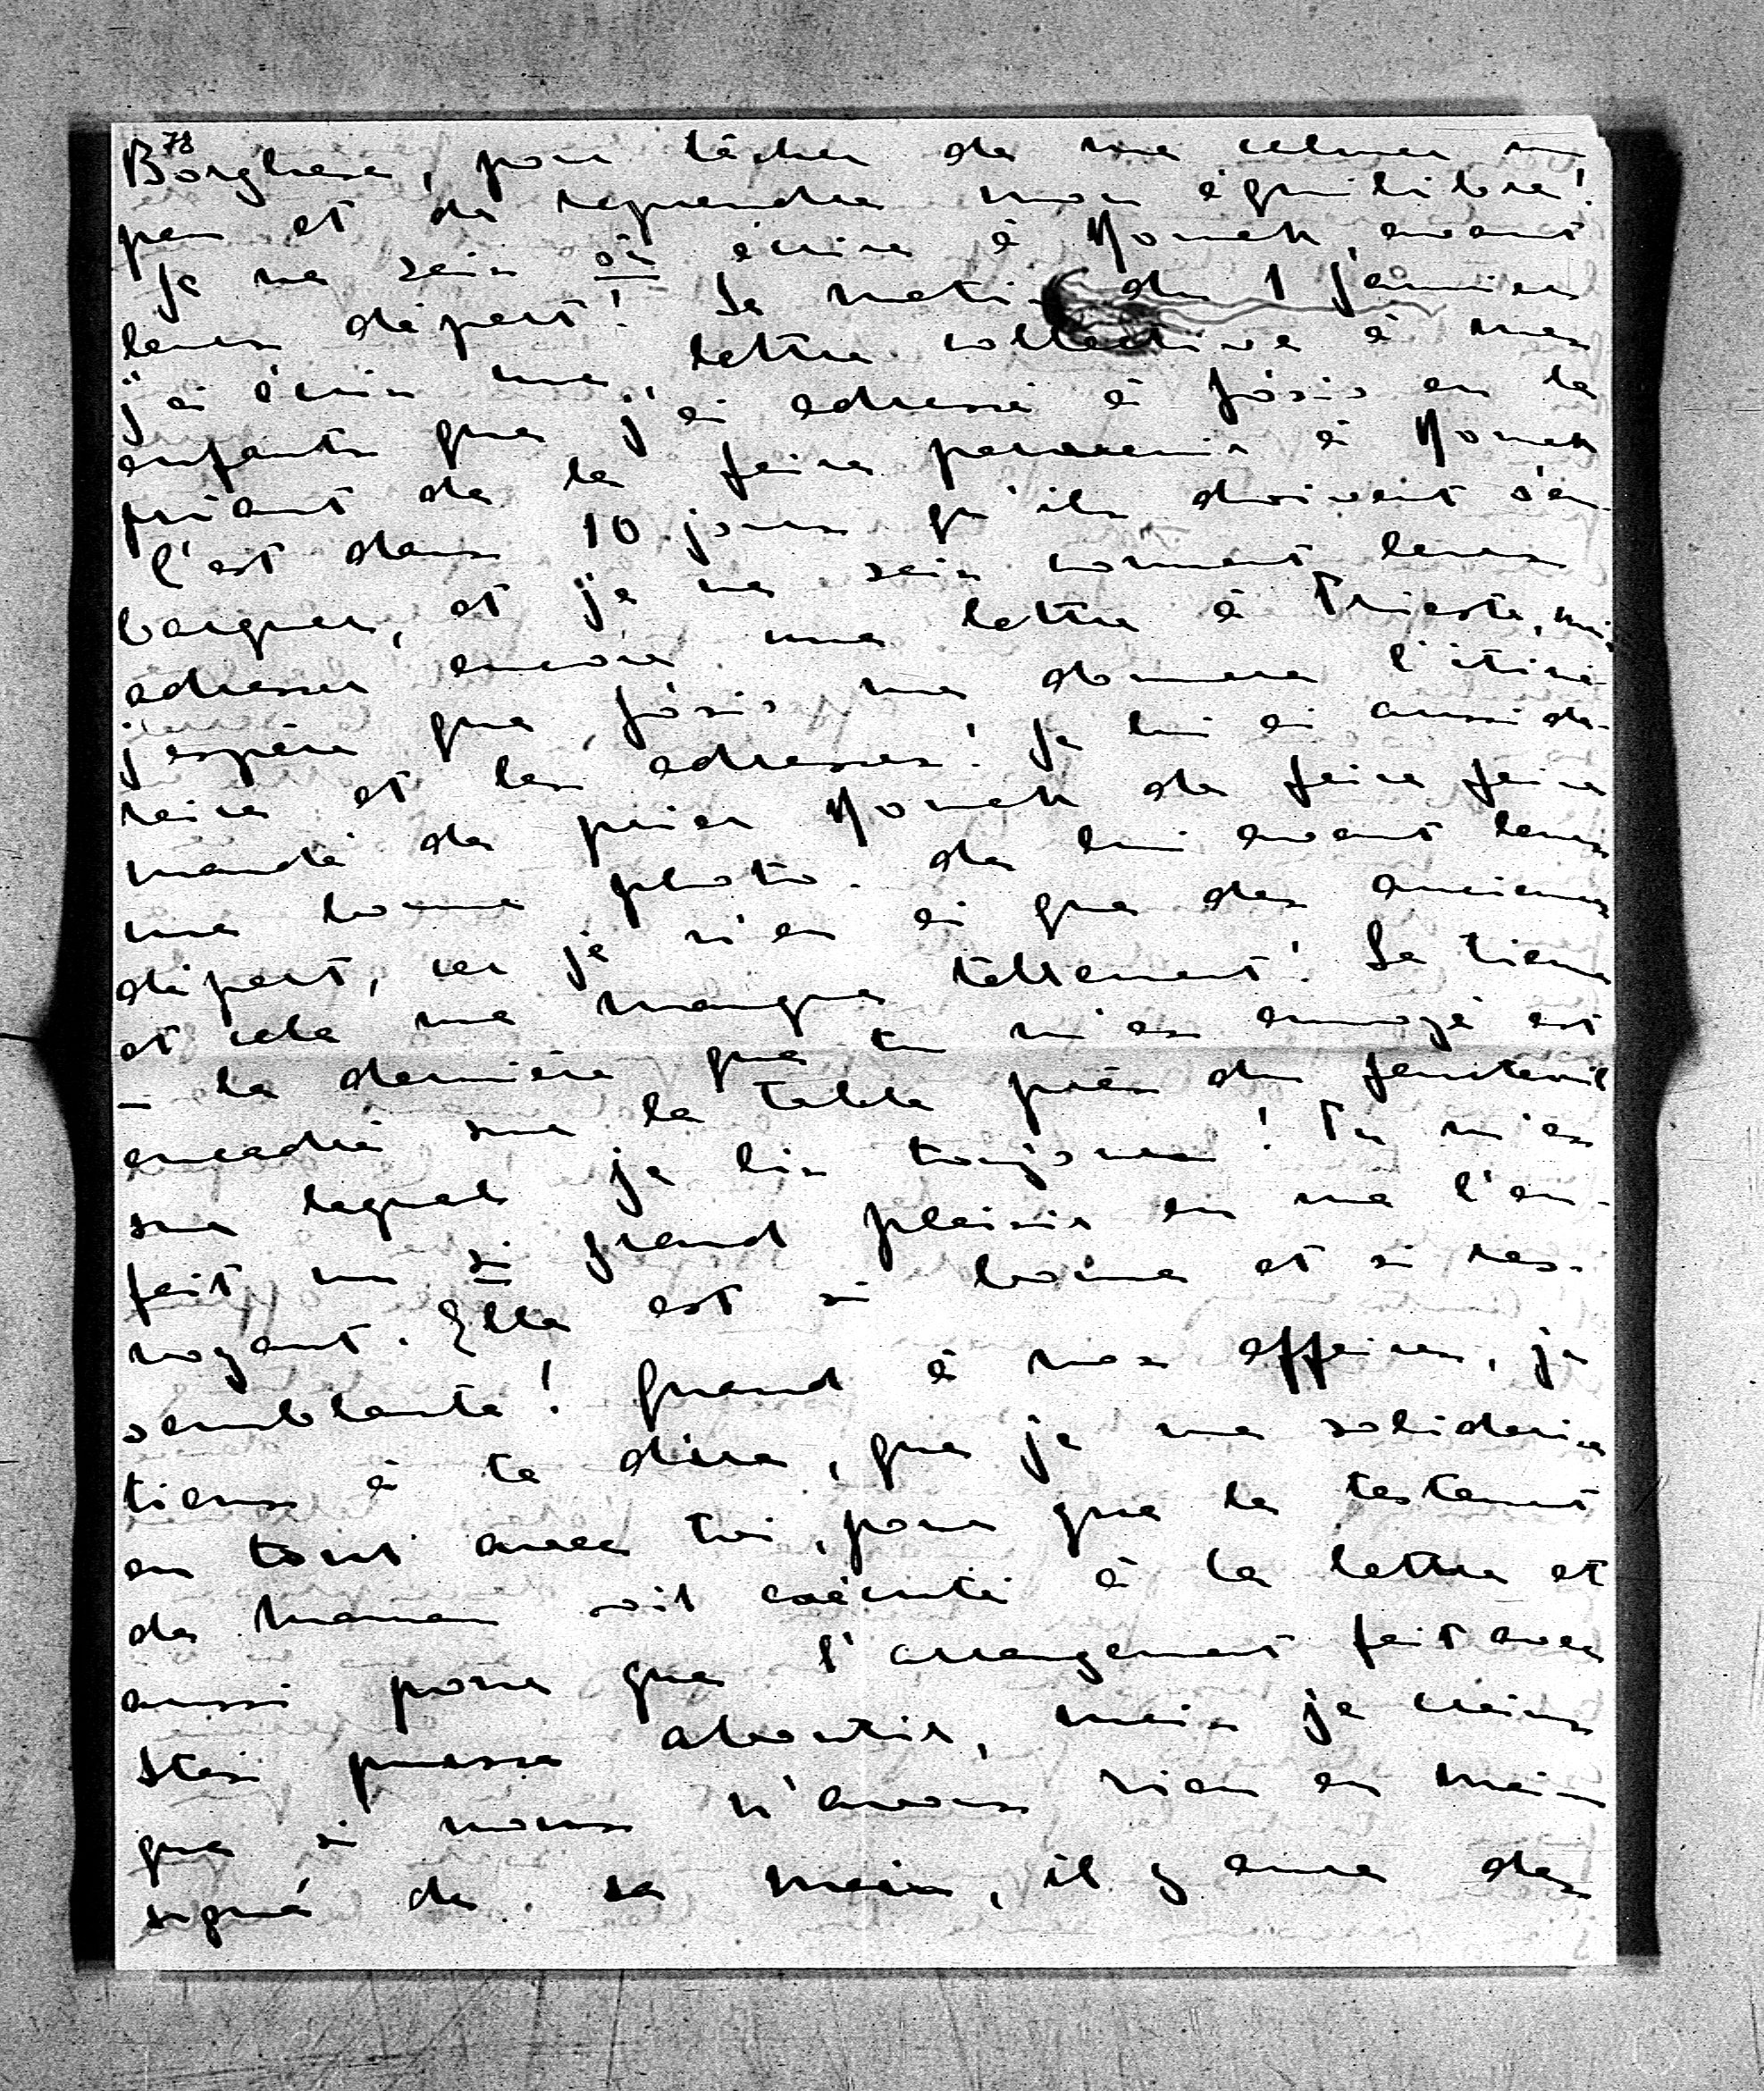 78
Borghese, pour tâcher de me calmer un
peu et de reprendre mon équilibre!
Je ne sais où écrire à Romek, avant
leur départ! Le matin du 1 janvier
j'ai écris une, lettre collective à mes
enfants que j'ai adressé à Józio en le
priant de la faire parvenir à Romek
C'est dans 10 jours qu'ils doivent s'em-
barquer, et je ne sais comment leur
adresser encore une lettre à Trieste, mais
j'espère que Józio me donnera l'itiné-
raire et les adresses! Je lui ai aussi de-
mandé de prier Romek de faire faire
une bonne photo. de lui avant leur
départ, car je n'en ai que des anciennes
et cela me manque tellement! La tienne
– la dernière que tu m'as envoyé est
encadré sur la table près du fauteuil
sur lequel je lis toujours! Tu m'as
fait un si grand plaisir en me l'en-
voyant. Elle est si bonne et si res-
semblante! Quand à nos affaires, je
tiens à te dire, que je me solidarise
en tout avec toi, pour que le testament
de Maman soit exécuté à la lettre et
aussi pour que l'arrangement fait avec
Staś puisse aboutir, mais je crains
que si nous n'avons rien en main
signé de sa main, il y aura des